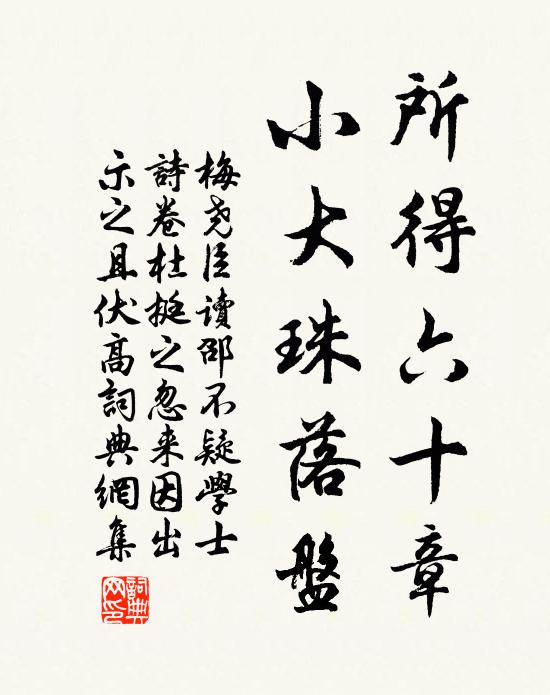 所得六十章
小大珠落盤
梅尧臣讀邵不疑學士
詩卷杜挺之忽来因出
示之且伏高詞典網集
詞典網印